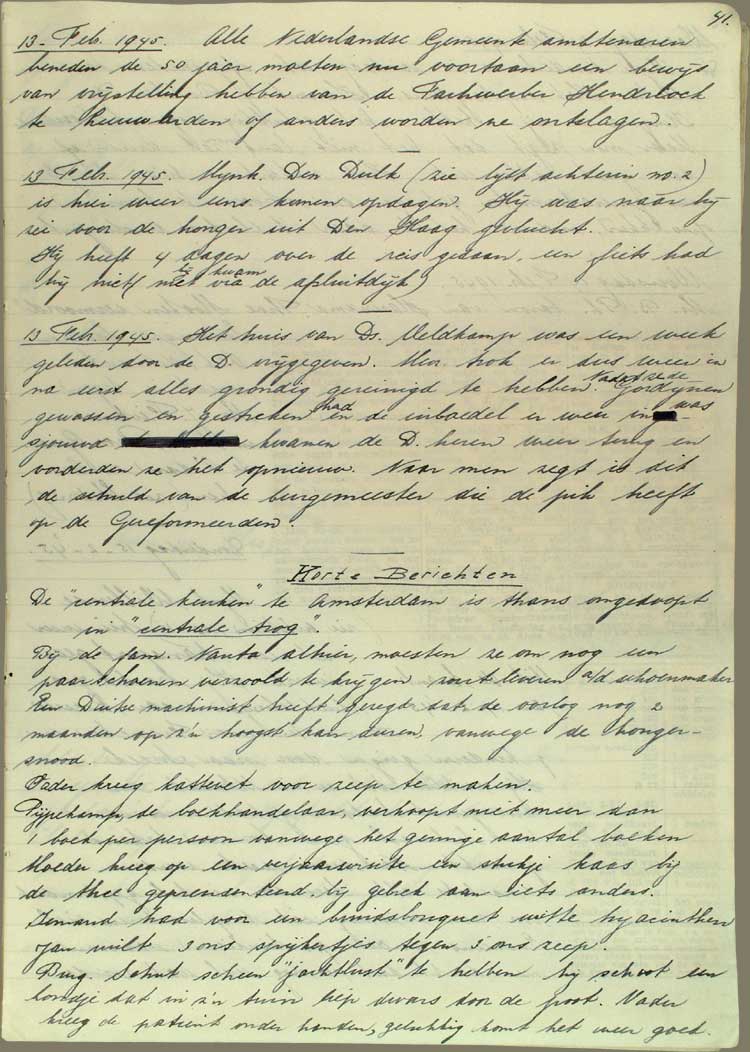 41.
13 - Feb. 1945. Alle Nederlandse Gemeente ambtenaren
beneden de 50 jaar moeten nu voortaan een bewijs
van vrijstelling hebben van de Fachwerber Hendriock
te Leeuwarden of anders worden ze ontslagen.
13 Feb. 1945. Mynh. Den Dulk (zie lijst achterin no. 2)
is hier weer eens komen opdagen. Hij was naar hij
zei voor de honger uit Den Haag gevlucht.
Hij heeft 4 dagen over de reis gedaan, een fiets had
hij niet (niet via de afsluitdijk)
hij kwam
13 Feb. 1945. Het huis van Ds. Veldkamp was een week
geleden door de D. vrijgegeven. Mevr. trok er dus weer in
na eerst alles grondig gereinigd te hebben. Nadat ze de Gordynen
gewassen en gestreken had en de inboedel er weer in was
sjouwd kwamen de D. heren weer terug en
vorderden ze het opnieuw. Naar men zegt is dit
de schuld van de burgemeester die de pik heeft
op de Gereformeerden.
Korte Berichten
De "centrale keuken" te Amsterdam is thans omgedoopt
in "centrale trog".
Bij de fam. Nauta alhier, moesten ze om nog een
paar schoenen verzoold te krijgen zout leveren a/d schoenmaker
Een Duitse machinist heeft gezegd dat de oorlog nog 2
maanden op z'n hoogst kan duren, vanwege de honger-
snood.
Vader kreeg kattevet voor zeep te maken.
Pijpekamp, de boekhandelaar, verkoopt niet meer dan
1 boek per persoon vanwege het geringe aantal boeken
Moeder kreeg op een verjaarvisite een stukje kaas bij
de thee gepresenteerd bij gebrek aan iets anders.
Iemand had voor een bruidsbouquet witte hyacinthen
Jan ruilt 3 ons spijkertjes tegen 3 ons zeep.
Burg. Schut scheen "jachtlust" te hebben hij schoot een
hondje dat in z'n tuin liep dwars door de poot. Vader
kreeg de patient onder handen, gelukkig komt het weer goed.